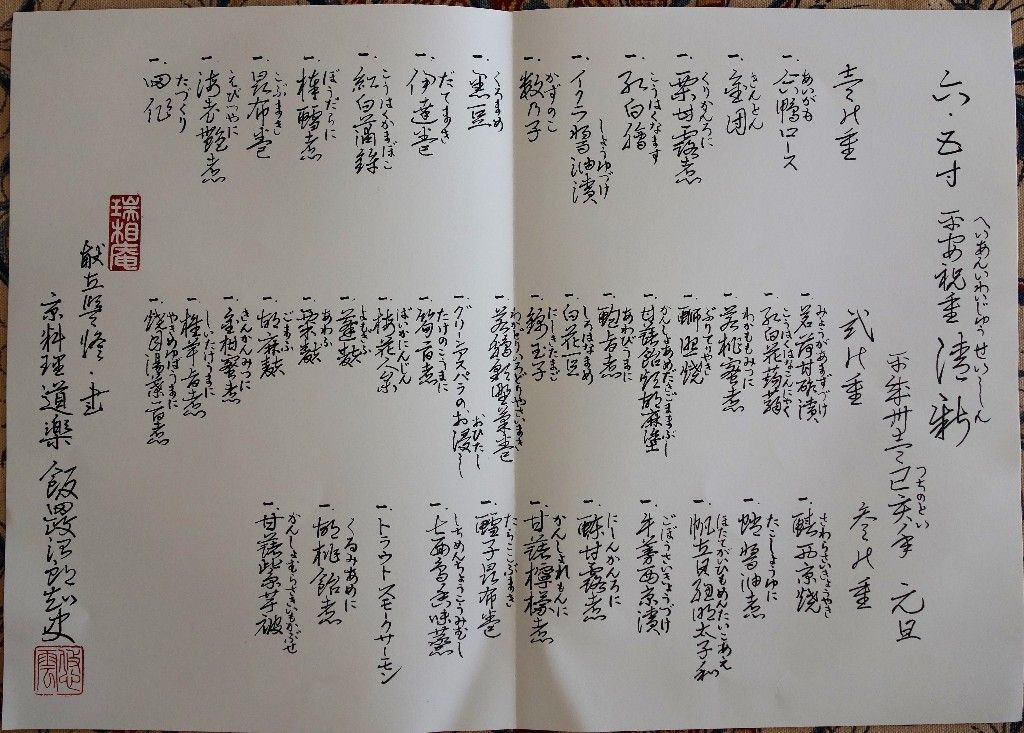 六・五寸 平安祝重 清新
へいあんいわいじゅう せいしん
平成卅壱己亥年 元旦
つちのとい
壱の重
一、合鴨ロース
あいがも
一、金団
きんとん
一、栗甘露煮
くりかんろに
一、紅白膾
こうはくなます
一、イクラ醤油漬
しょうゆづけ
一、数乃子
かずのこ
一、黒豆
くろまめ
一、伊達巻
だてまき
一、紅白蒲鉾
こうはくかまぼこ
一、棒鱈煮
ぼうだらに
一、昆布巻
こぶまき
一、海老艶煮
えびつやに
一、田作
たづくり
弐の重
一、茗荷甘酢漬
みょうがあまずづけ
一、紅白花蒟蒻
こうはくはなこんにゃく
一、若桃蜜煮
わかももみつに
一、鰤照焼
ぶりてりやき
一、甘藷飴炊胡麻塗
一、鮑旨煮
あわびうまに
一、白花豆
しろはなまめ
一、錦玉子
にしきたまご
一、若鶏野菜巻
一、グリーンアスパラのお浸し
おひたし
一、筍旨煮
たけのこうまに
一、梅花人参
ばいかにんじん
一、蓬麩
よもぎふ
一、粟麩
あわふ
一、胡麻麩
ごまふ
一、金柑蜜煮
きんかんみつに
一、椎茸旨煮
しいたけうまに
一、焼目湯葉旨煮
やきめゆばうまに
参の重
一、鰆西京焼
さわらさいきょうやき
一、蛸醤油煮
たこしょうゆに
一、帆立貝紐明太子和
ほたてがいひもめんたいこあえ
一、牛蒡西京漬
ごぼうさいきょうづけ
一、鰊甘露煮
にしんかんろに
一、甘藷檸檬煮
かんしょれもんに
一、鱈子昆布巻
たらこぶまき
一、七面鳥香味蒸
しちめんちょうこうみむし
一、トラウトスモークサーモン
一、胡桃飴煮
くるみあめに
一、甘藷紫芋被
かんしょむらさきいもかぶせ
瑞相庵
献立監修・書
京料理道楽 飯田知史